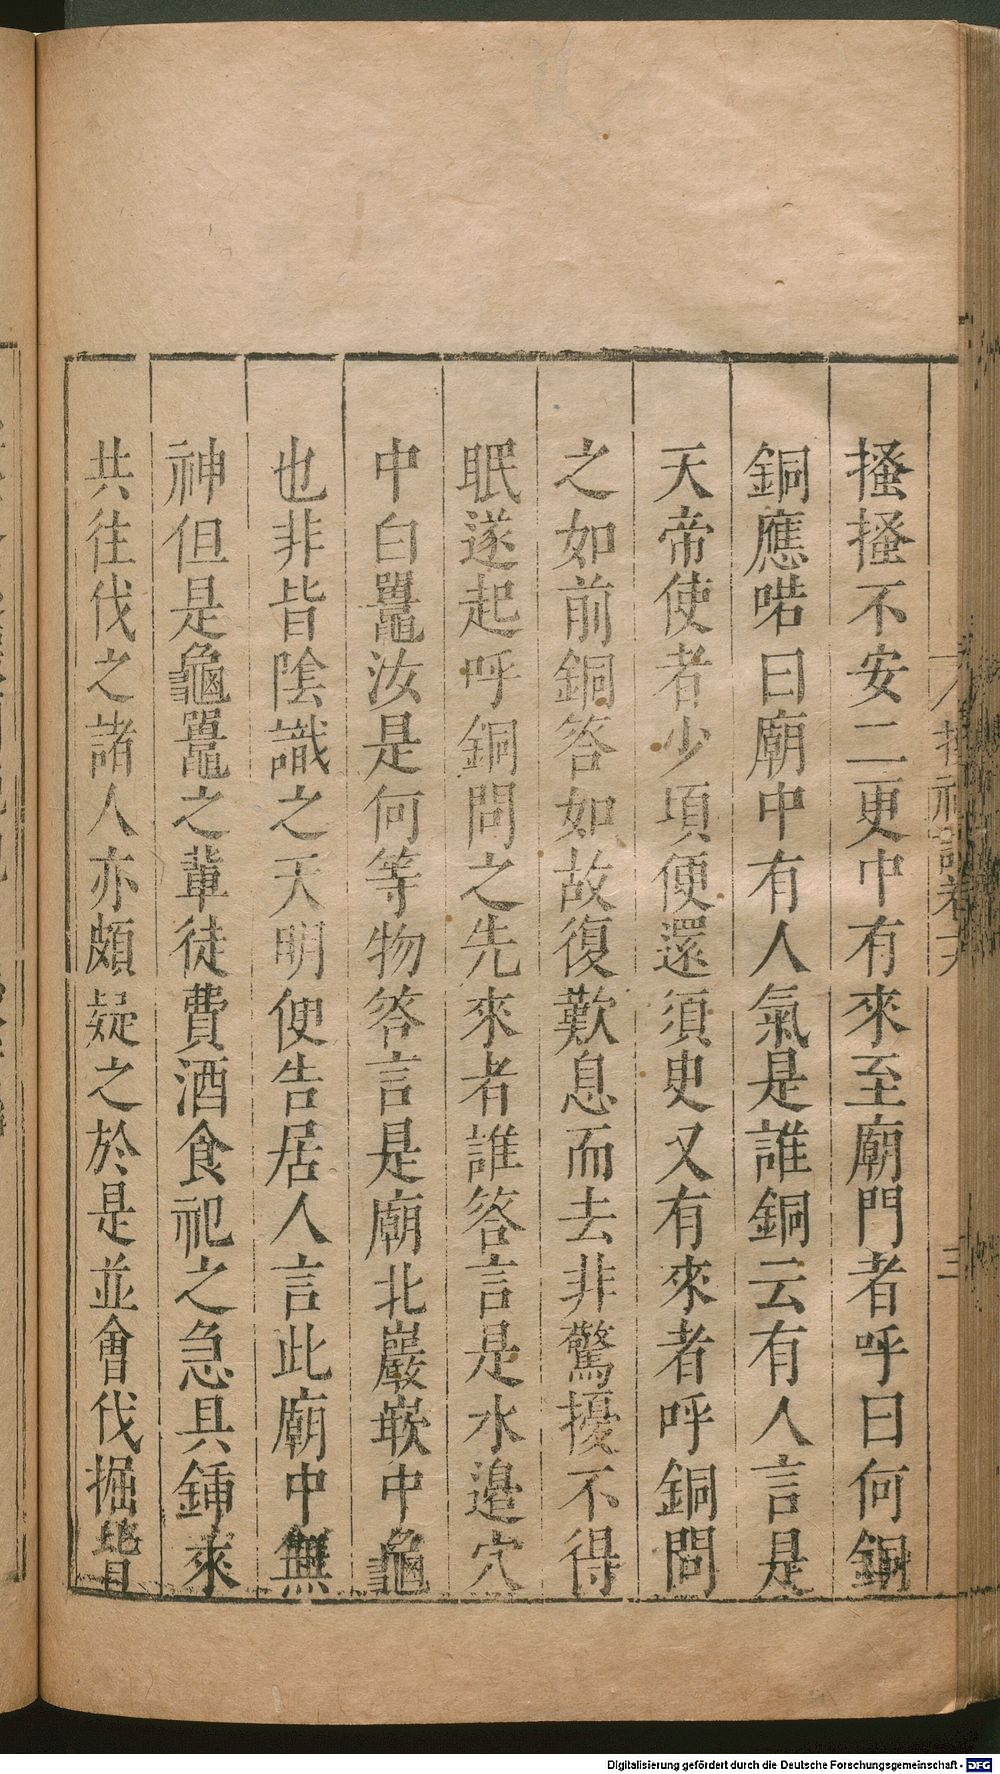 搔搔不安二更中有來至廟門者呼曰何銅
銅應喏曰廟中有人氣是誰銅云有人言是
天帝使者少項便還須臾又有來者呼銅問
之如前銅答如故復歎息而去非驚擾不得
眠遂起呼銅問之先來者誰答言是水邊穴
中白鼉汝是何等物答言是廟北巖嵌中龜
也非皆陰識之天明便告居人言此廟中無
神但是龜鼉之輩徒費酒食祀之急具鍤來
共往伐之諸人亦頗疑之於是並會伐掘皆
Digitalisierung gefördert durch die Deutsche Forschungsgemeinschaft - DFG